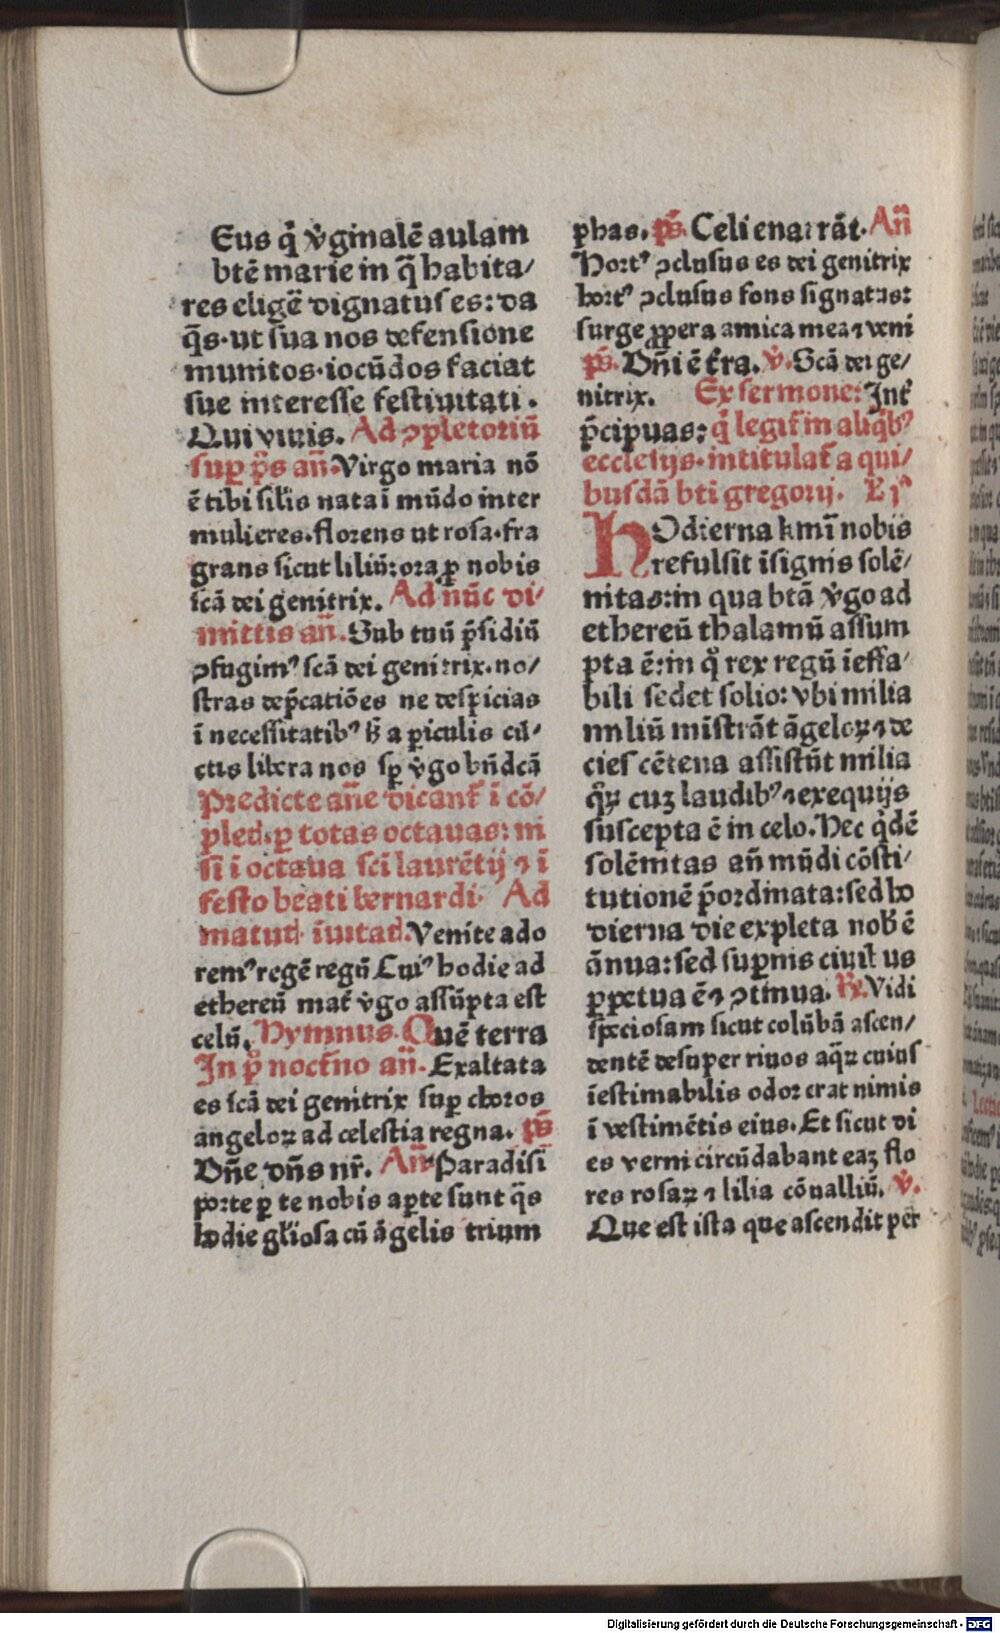 Eus q̄ v̓ginalē aulam
btē marie in q̄ habita/
res eligē dignatus es: da
q̄s. ut sua nos defensione
munitos. iocūdos faciat
sue interesse festiuitati.
Qui viuis. Ad ꝯpletoriū
sup p̄s an̄. Virgo maria nō
ē tibi silis nata ī mūdo inter
mulieres. florens ut rosa. fra
grans sicut liliū: ora ꝓ nobis
scā dei genitrix. Ad nūc di/
mittis an̄. Sub tuū p̄sidiū
ꝯfugimꝰ scā dei genitrix. no/
stras dep̄catiōes ne despicias
ī necessitatibꝰ sꝫ a ꝑiculis cū/
ctis libera nos sp̄ v̓go bn̄dcā
Predicte an̄e dicant̄ ī cō/
pled. ꝑ totas octauas: ni
si ī octaua sci laurētij ⁊ ī
festo beati bernardi. Ad
matud. īuitad. Venite ado
remꝰ regē regū Cuiꝰ hodie ad
ethereū mat̄ v̓go assūpta est
celū. Hymnus. Quē terra
In p̄ noct̄no an̄. Exaltata
es scā dei genitrix sup choros
angeloꝝ ad celestia regna. p̄s
Dn̄e dn̄s nr̄. An̄ Paradisi
porte ꝑ te nobis apte sunt q̄s
hodie gliosa cū āgelis trium
phas. p̄s. Celi enarrāt. An̄
Hortꝰ ꝯclusus es dei genitrix
hortꝰ ꝯclusus fons signatus:
surge ꝓpera amica mea ⁊ veni
p̄s. Dn̄i ē t̄ra. v̓. Scā dei ge/
nitrix. Ex sermone: Int̄
p̄cipuas: q̄ legit̄ in aliq̄bꝰ
ecclesijs. intitulat̄ a qui/
busdā bti gregorij. Lꝭ jᵃ
HOdierna kmī nobis
refulsit īsignis solē/
nitas: in qua btā v̓go ad
ethereū thalamū assum
pta ē: in q̊ rex regū ieffa/
bili sedet solio: vbi milia
miliū mīstrāt āgeloꝝ ⁊ de
cies cētena assistūt milia
q̄ꝝ cuꝫ laudibꝰ ⁊ exequijs
suscepta ē in celo. Hec q̓dē
solēnitas an̄ mūdi cōsti/
tutionē p̄ordinata: sed ho
dierna die expleta nob̄ ē
ānua: sed supnis ciuibꝰ
ꝑpetua ē ⁊ ꝯtinua. ℟. Vidi
speciosam sicut colūbā ascen/
dentē desuper riuos aq̄ꝝ cuius
īestimabilis odor erat nimis
ī vestimētis eius. Et sicut di
es verni circūdabant eaꝫ flo
res rosaꝝ ⁊ lilia cōualliū. v̓.
Que est ista que ascendit per
Digitalisierung gefördert durch die Deutsche Forschungsgemeinschaft - DFG